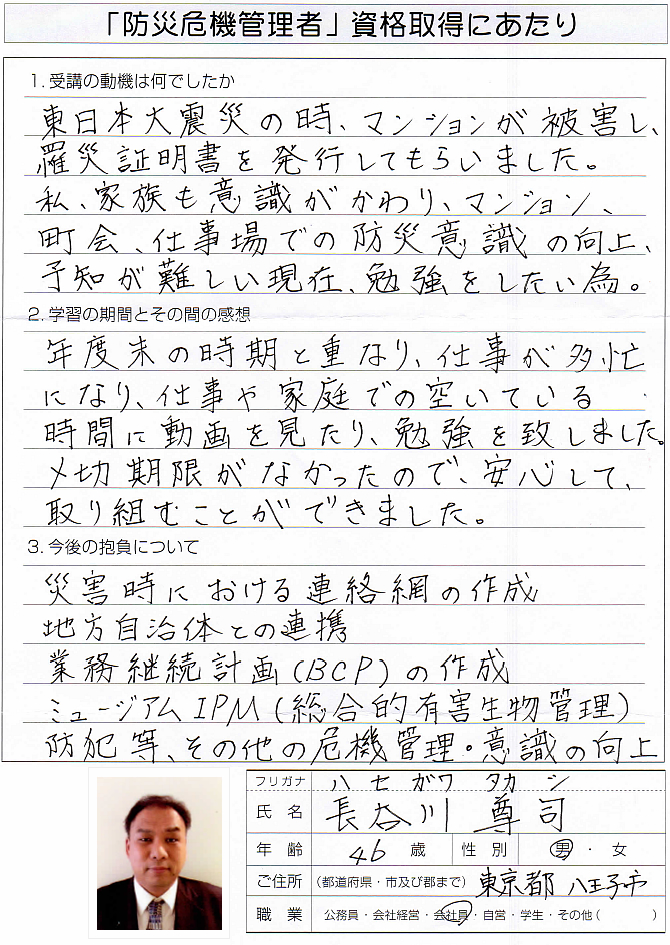 「防災危機管理者」資格取得にあたり
1. 受講の動機は何でしたか
東日本大震災の時、マンションが被害し、
羅災証明書を発行してもらいました。
私、家族も意識がかわり、マンション、
町会、仕事場での防災意識の向上、
予知が難しい現在、勉強をしたい為。
2. 学習の期間とその間の感想
年度末の時期と重なり、仕事が多忙
になり、仕事や家庭での空いている
時間に動画を見たり、勉強を致しました。
〆切期限がなかったので、安心して、
取り組むことができました。
3. 今後の抱負について
災害時における連絡網の作成
地方自治体との連携
業務継続計画(BCP)の作成
ミュージアムIPM(総合的有害生物管理)
防犯等、その他の危機管理・意識の向上
フリガナ ハセガワ タカシ
氏名 長谷川 尊司
年齢 46 歳 性別 男・女
ご住所 (都道府県・市及び郡まで) 東京都 八王子市
職業 公務員・会社経営・会社員・自営・学生・その他( )